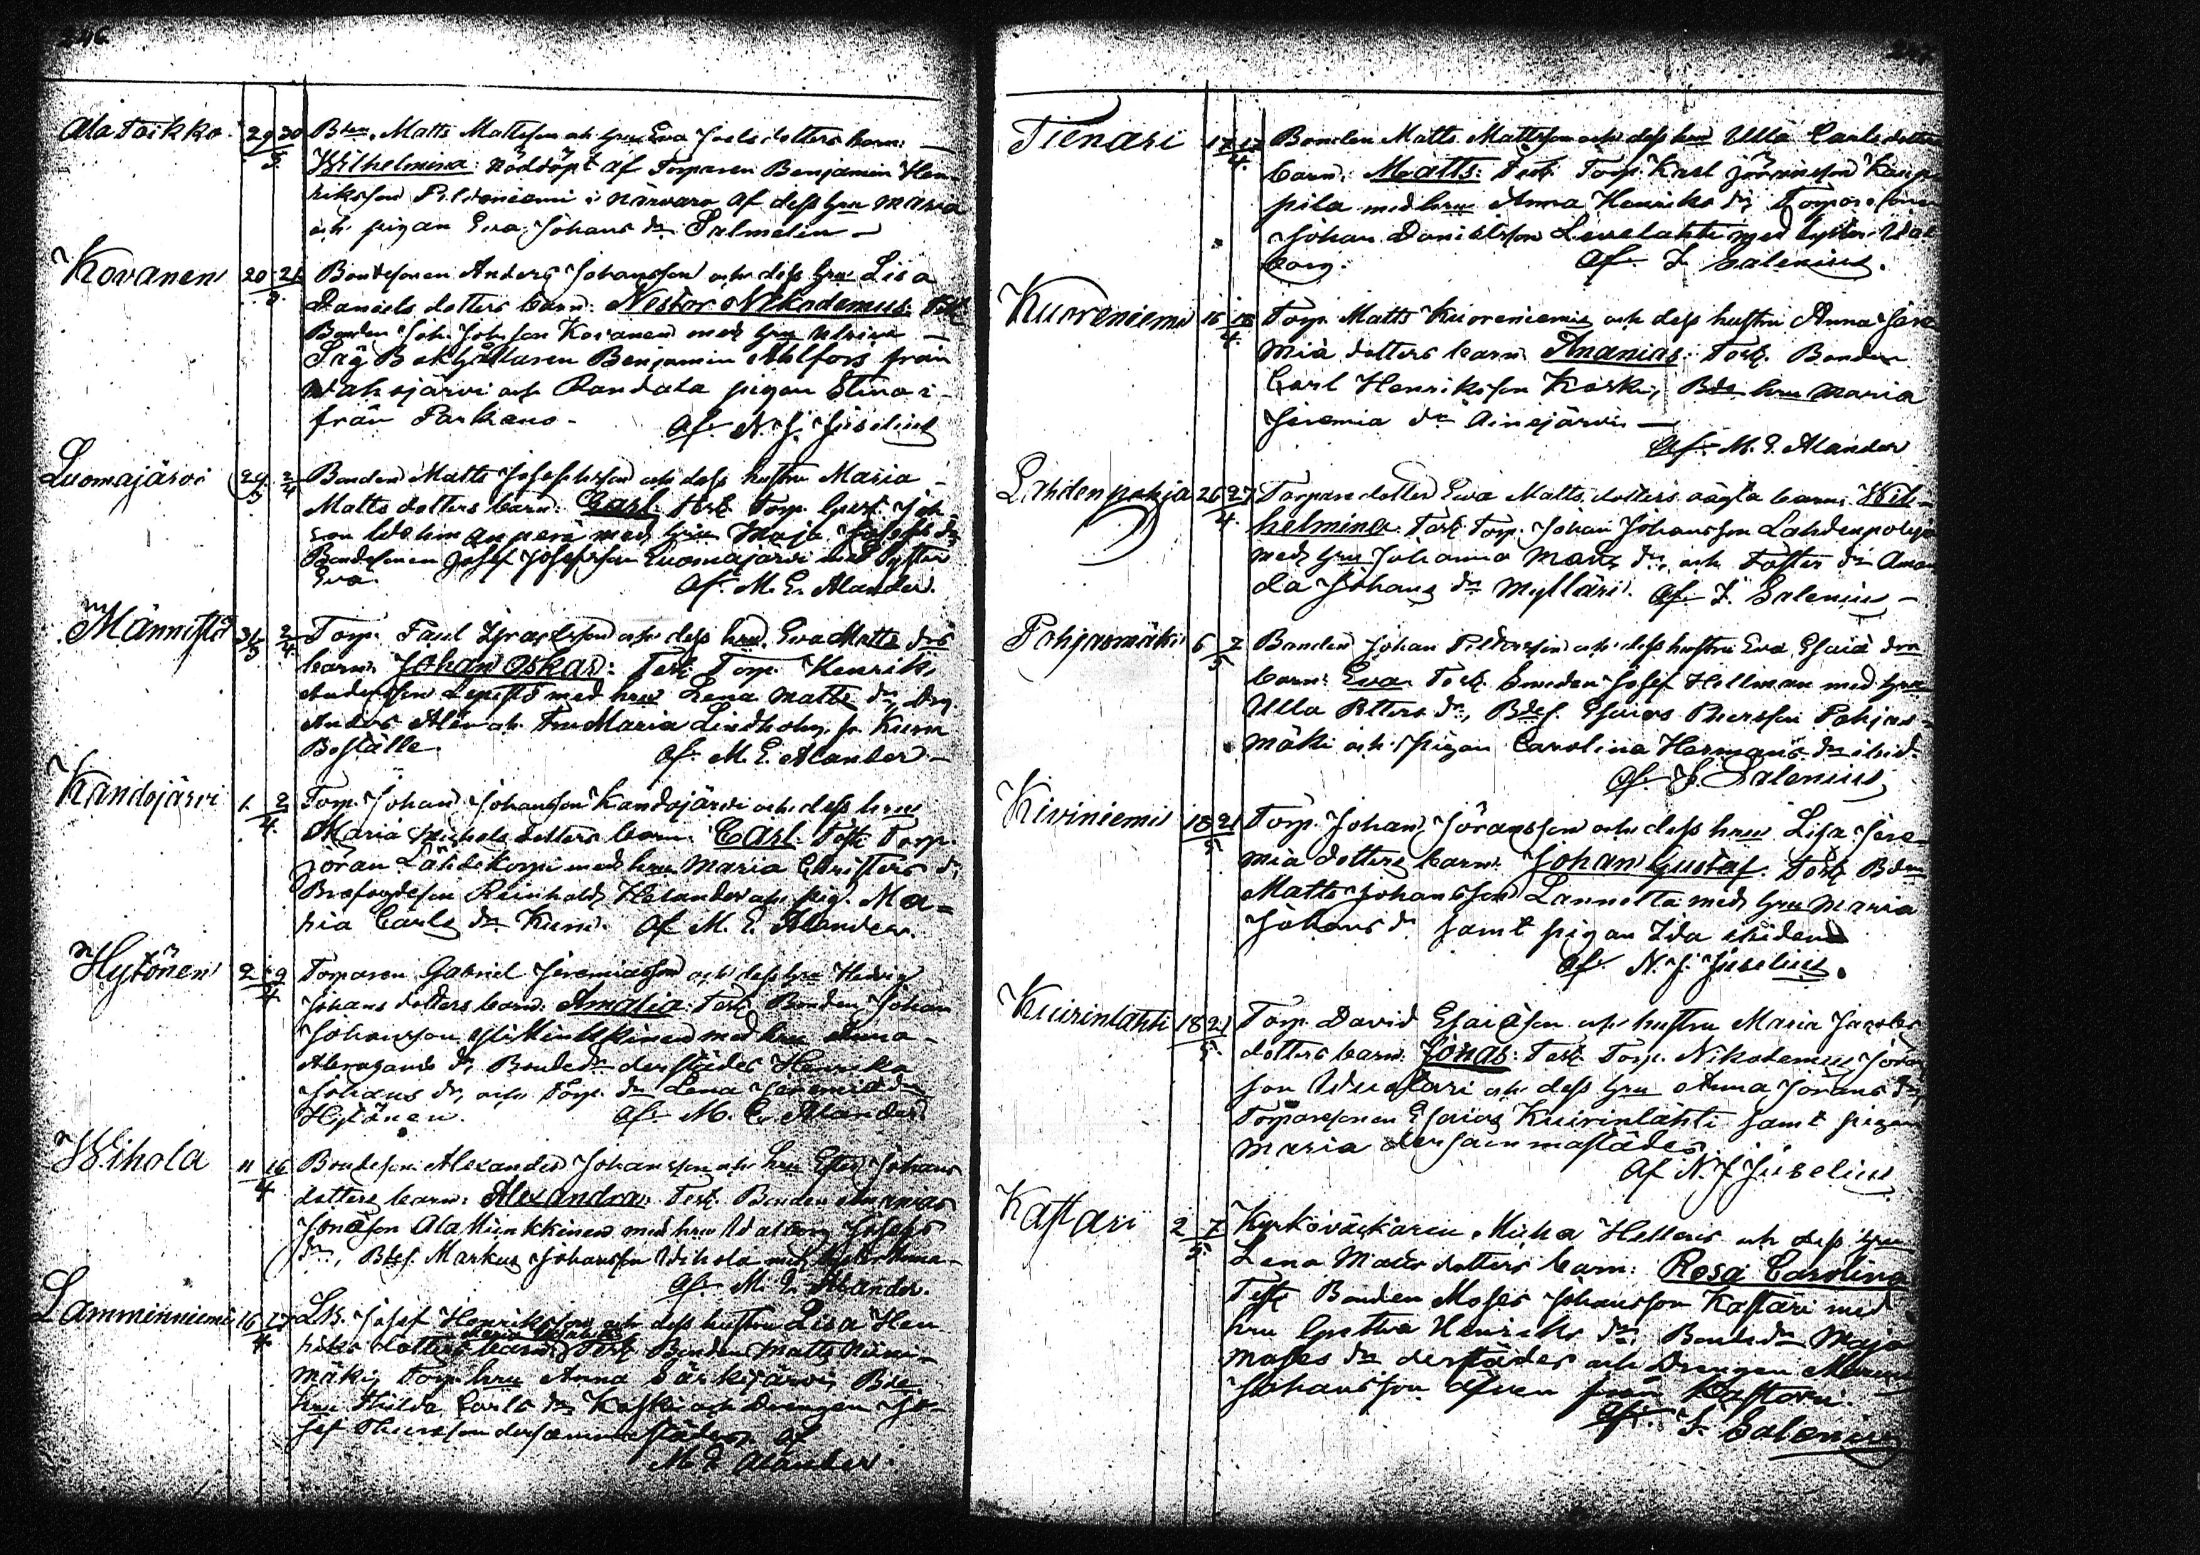 246
Ala Toikko 29 30/3 Bdn. Matts Mattsson och hru Eva Joels dotters barn:
Wilhelmina: nöddöpt af Torparen Benjamin Hen
riksson i närvaro af dess hru Maria
och pigan Eva Johans dr Salmelin
Kovanen 20 21 Bondesonen Anders Johansson och dess hru Lisa
Daniels dotters barn: Nestor Nikodemus: Test
Bonden Joh: Johnsson Kovanen med hru Ulrica
Benjamin Ahlfors från
och Randala pigan Stina
från Parkano. Af N. J. Juselius
Luomajärvi 29/3 2/4 Bonden Matts Josephsson och dess hustru Maria
Matts dotters barn: Carl: Test: Torp. Gust. Joh
son med hru Maja Josephs dr
Bondesonen Josef Josefsson Luomajärvi med Syster
Eva. Af M. E. Alander.
Männistö 31/3 2/4 Torp. Faul Israelsson och dess hru Eva Matts drs
barn: Johan Oskar: Test: Torp. Henrik
Andersson Lepistö med hru Lena Matts dr, Drg.
Anders Alén och Fru Maria Lindholm fr. Kuru
Boställe. Af M. E. Alander
Kandojärvi 1. 2/4 Torp. Johan Johansson Kandojärvi och dess hru
Maria Michels dotters barn: Carl: Test: Torp.
Jöran Lähdekorpi med hru Maria Christers dr
Reinhold Helander och pig. Ma=
ria Carls dr Kuru. Af M. E. Alander.
Hytönen 2 9/4 Torparen Gabriel Jeremiasson och dess hru Hedvig
Johans dotters barn: Amalia: Test: Bonden Johan
Johansson med hru Anna
Abrahams dr, Bondedr derstädes Henrika
Johans dr, och Torp. dr Lena Jeremias dr
Hytönen. Af M. E. Alander
Wihola 11 16/4 Bondeson Alexander Johansson och hru Ester Johans
dotters barn: Alexandra: Test: Bonden Ananias
Jonasson Ala Kiukkinen med hru Walborg Josephs
dr, Bdes. Markus Johansson Wihola med Syster Anna
Af M. E. Alander.
Lamminniemi 16 17/4 Josef Henriksson och dess hustru Lisa Hen
riks dotters barn: Test: Bonden Matts
mäki, Torp. hru Anna Särkijärvi, Bde
hru Hilda Carls dr Koski och Drengen Jo
sef Thursson dersammastädes. Af
M. E. Alander.
Tienari 17 17/4 Bonden Matts Mattsson och dess hru Ulla Carls dotters
barn: Matts: Test: Torp. Karl Jöransson Kaup
pila med hru Anna Henriks dr, Torpareson
Johan Danielsson Levelahti med Syster Wal
borg. Af F. Salenius.
Kuoreniemi 15 18/4 Torp. Matts Kuoreniemi och dess hustru Anna Jere
mia dotters barn: Ananias: Test: Bonden
Carl Henriksson Koski, Bde hru Maria
Jeremia dr Ainejärvi
Af M. E. Alander
Lahdenpohja 26 27/4 Torpare dotter Eva Matts dotters oägta barn: Wil-
helmina: Test: Torp. Johan Johansson Lahdenpohja
med hru Johanna Matts dr, och Foster dr Aman
da Johans dr Mylläri. Af F. Salenius
Pohjasmäki 6 7/5 Bonden Johan Pettersson och dess hustru Eva Esaia drs
barn: Eva: Test: Smeden Josef Hellman med hru
Ulla Petters dr, Bdes. Esaias Pohjas
mäki och Pigan Carolina Hermans dr ibid.
Af F. Salenius
Kiviniemi 18 21/5 Torp. Johan Jöransson och dess hru Lisa Jere
mia dotters barn: Johan Gustaf: Test: Bdn
Matts Johansson Lannetta med hru Maria
Johans dr samt pigan Ida ibidem
Af N. J. Juselius.
Kuirinlahti 18 21/5 Torp. David Esaiason och hustru Maria Jacobs
dotters barn: Jonas: Test: Torp. Nikodemus Jöran
son och dess hru Anna Jörans dr,
Torparesonen Esaias Kuirinlahti samt pigan
Maria dersammastädes
Af N. J. Juselius
Kastari 2 7/5 Kyrkoväktaren Micha Hellens och dess hru
Lena Matts dotters barn: Rosa Carolina
Test: Bonden Moses Johansson Kastari med
hru Gustava Henriks dr, Bonde dr Maja
Moses dr derstädes och Drengen
Johansson äfven från Kastari.
Af F. Salenius